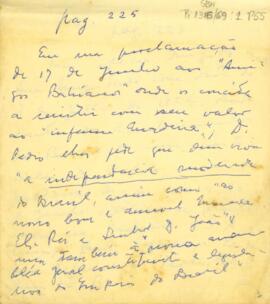 pag 225
SBH
Pi 139/69 : 1 P55
Em uma proclamação
de 17 de Junho aos "Ami-
gos Bahianos" onde os convida
a resistir com seu valor
ao "infame Madeira", D.
Pedro elhes pede que dêem vivas
"a independencia moderada
do Brasil, assim como "ao
nosso bom e amavel Monarca
El. Rei o Senhor D. João"
mas tambem à nossa assem-
bléa geral constituinte e legisla-
tiva do Imperio do Brasil"